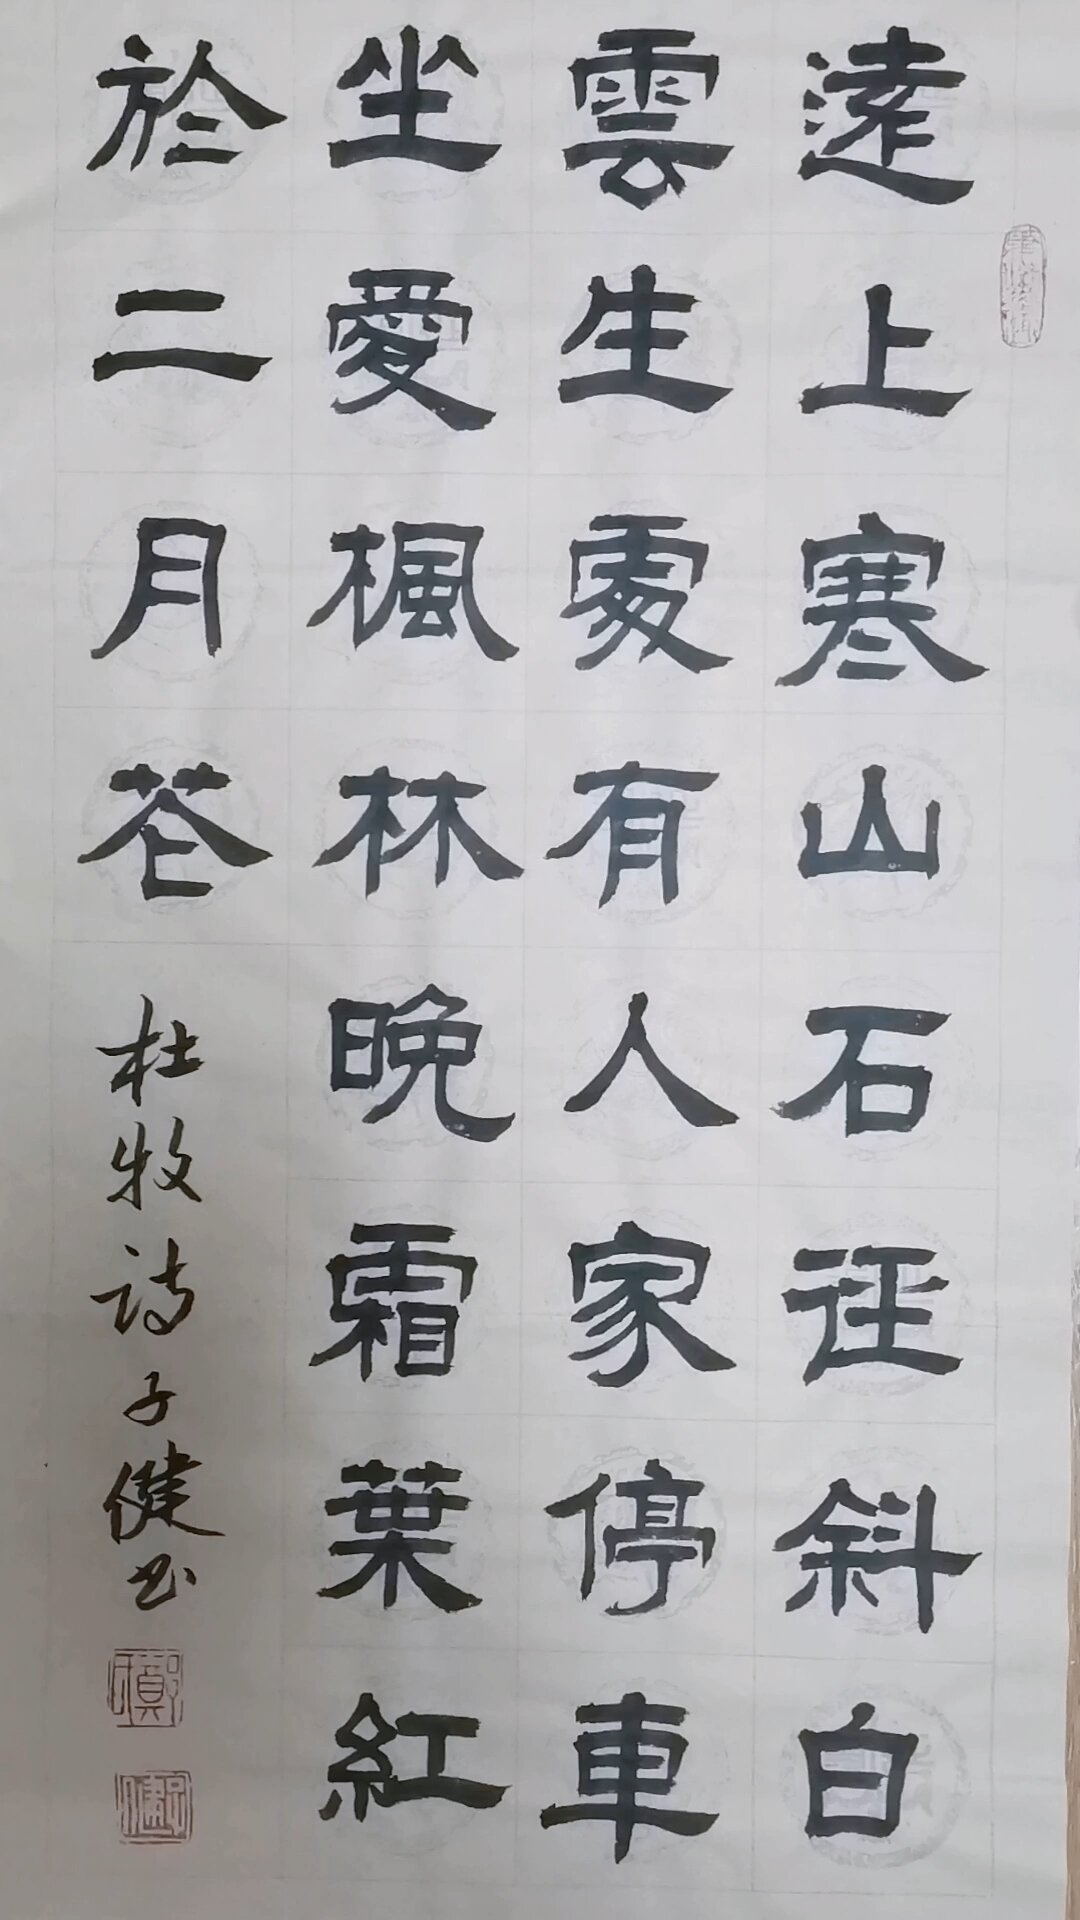 遠上寒山石径斜白
雲生處有人家停車
坐愛楓林晚霜葉紅
於二月花
杜牧诗子健书